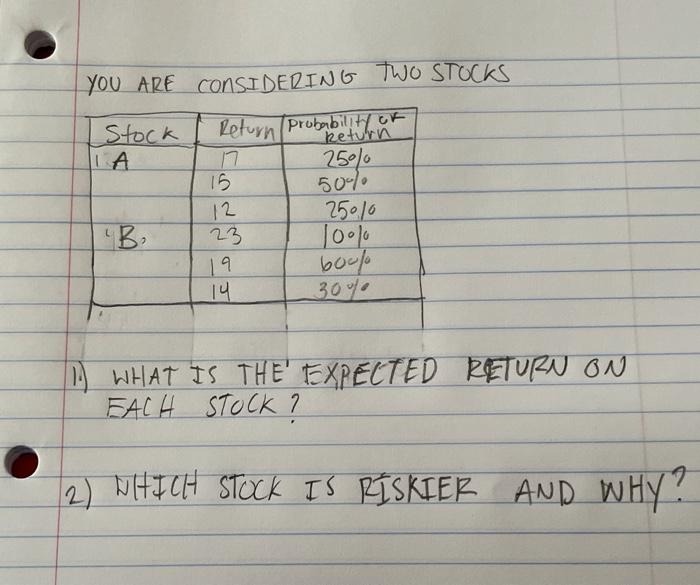 YOU ARE CONSIDERING TWO STOCKS
Stock Return Probability of
Return
A 17 25%
15 50%
12 25%
B 23 10%
19 60%
14 30%
1.) WHAT IS THE EXPECTED RETURN ON
EACH STOCK?
2) WHICH STOCK IS RISKIER AND WHY?